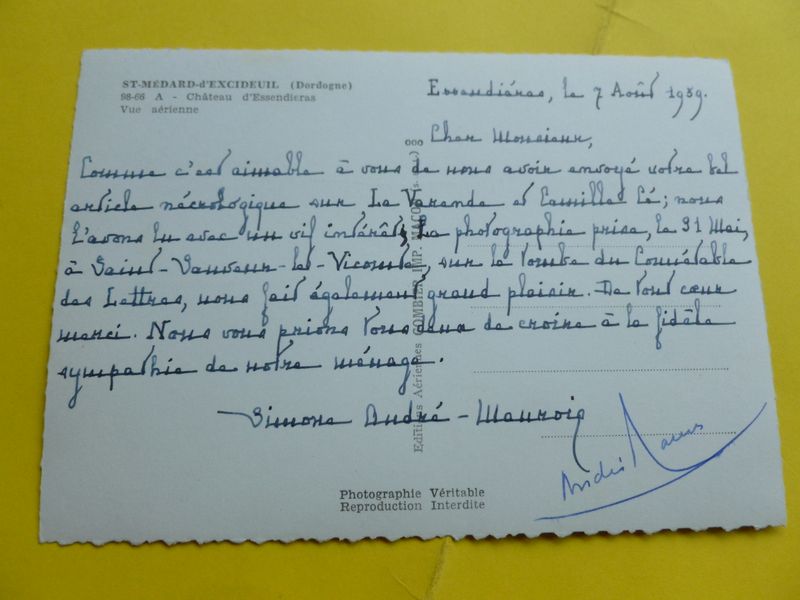 ST-MÉDARD-d'EXCIDEUIL (Dordogne)
98-66 A - Château d'Essendieras
Vue aérienne
Essendiéras, le 7 Août 1959.
Cher Monsieur,
Comme c'est aimable à vous de nous avoir envoyé votre bel
article nécrologique sur La Varende et Camille Cé; nous
l'avons lu avec un vif intérêt; la photographie prise, le 31 Mai,
à Saint-Sauveur-le-Vicomte, sur la tombe du Connétable
des Lettres, nous fait également grand plaisir. De tout cœur
merci. Nous vous prions tous deux de croire à la fidèle
sympathie de notre ménage.
Simone André-Maurois
André Maurois
Editions Aériennes COMBIER IMP. MACON
Photographie Véritable
Reproduction Interdite